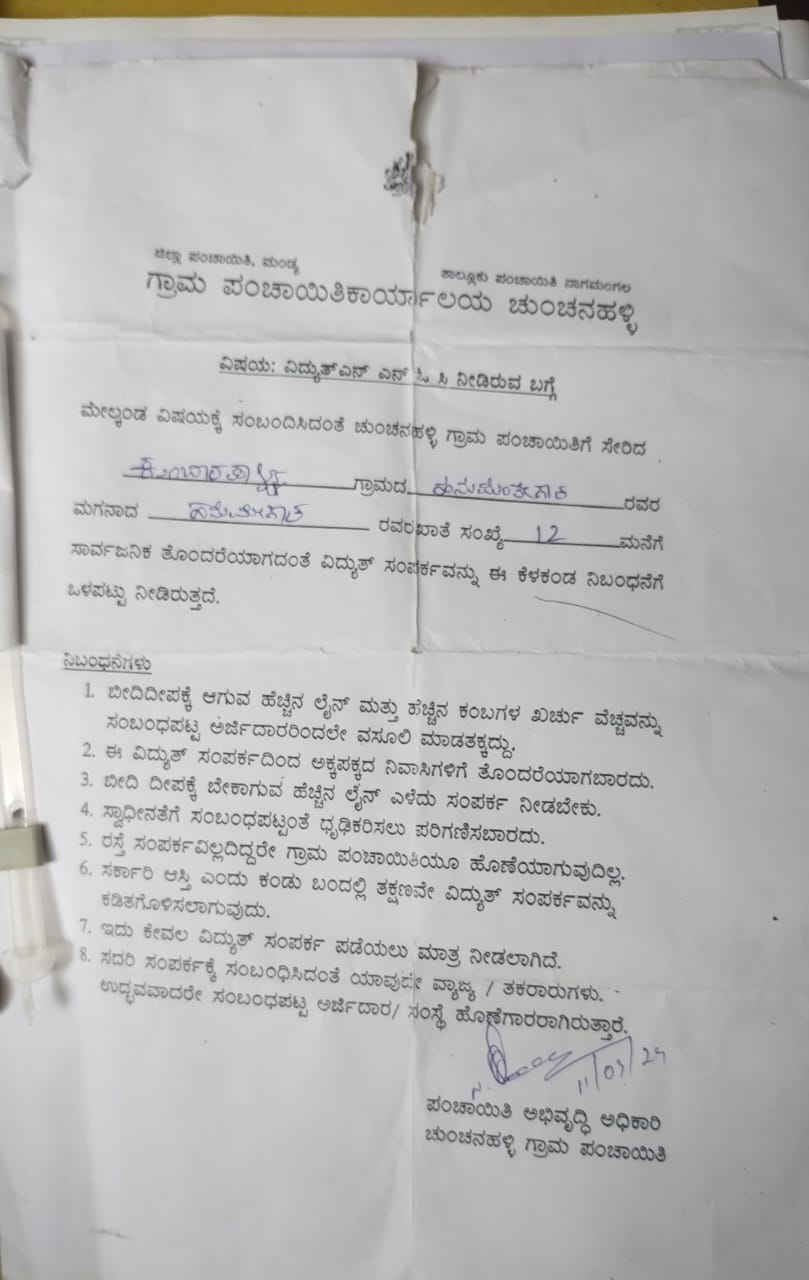 ಜಿಲ್ಲಾ ಪಂಚಾಯಿತಿ, ಮಂಡ್ಯ ತಾಲ್ಲೂಕು ಪಂಚಾಯಿತಿ ನಾಗಮಂಗಲ
ಗ್ರಾಮ ಪಂಚಾಯಿತಿಕಾರ್ಯಾಲಯ ಚುಂಚನಹಳ್ಳಿ
ವಿಷಯ: ವಿದ್ಯುತ್ಎನ್ ಎನ್ ಓ ಸಿ ನೀಡಿರುವ ಬಗ್ಗೆ
ಮೇಲ್ಕಂಡ ವಿಷಯಕ್ಕೆ ಸಂಬಂದಿಸಿದಂತೆ ಚುಂಚನಹಳ್ಳಿ ಗ್ರಾಮ ಪಂಚಾಯಿತಿಗೆ ಸೇರಿದ
ಗ್ರಾಮದ ರವರ
ಮಗನಾದ ರವರಖಾತೆ ಸಂಖ್ಯೆ 12 ಮನೆಗೆ
ಸಾರ್ವಜನಿಕ ತೊಂದರೆಯಾಗದಂತೆ ವಿದ್ಯುತ್ ಸಂಪರ್ಕವನ್ನು ಈ ಕೆಳಕಂಡ ನಿಬಂಧನೆಗೆ
ಒಳಪಟ್ಟು ನೀಡಿರುತ್ತದೆ.
ನಿಬಂಧನೆಗಳು
1. ಬೀದಿದೀಪಕ್ಕೆ ಆಗುವ ಹೆಚ್ಚಿನ ಲೈನ್ ಮತ್ತು ಹೆಚ್ಚಿನ ಕಂಬಗಳ ಖರ್ಚು ವೆಚ್ಚವನ್ನು
ಸಂಬಂಧಪಟ್ಟ ಅರ್ಜಿದಾರರಿಂದಲೇ ವಸೂಲಿ ಮಾಡತಕ್ಕದ್ದು.
2. ಈ ವಿದ್ಯುತ್ ಸಂಪರ್ಕದಿಂದ ಅಕ್ಕಪಕ್ಕದ ನಿವಾಸಿಗಳಿಗೆ ತೊಂದರೆಯಾಗಬಾರದು.
3. ಬೀದಿ ದೀಪಕ್ಕೆ ಬೇಕಾಗುವ ಹೆಚ್ಚಿನ ಲೈನ್ ಎಳೆದು ಸಂಪರ್ಕ ನೀಡಬೇಕು.
4. ಸ್ವಾಧೀನತೆಗೆ ಸಂಬಂಧಪಟ್ಟಂತೆ ಧೃಢಿಕರಿಸಲು ಪರಿಗಣಿಸಬಾರದು.
5. ರಸ್ತೆ ಸಂಪರ್ಕವಿಲ್ಲದಿದ್ದರೇ ಗ್ರಾಮ ಪಂಚಾಯಿತಿಯೂ ಹೊಣೆಯಾಗುವುದಿಲ್ಲ.
6. ಸರ್ಕಾರಿ ಆಸ್ತಿ ಎಂದು ಕಂಡು ಬಂದಲ್ಲಿ ತಕ್ಷಣವೇ ವಿದ್ಯುತ್ ಸಂಪರ್ಕವನ್ನು
ಕಡಿತಗೊಳಿಸಲಾಗುವುದು.
7. ಇದು ಕೇವಲ ವಿದ್ಯುತ್ ಸಂಪರ್ಕ ಪಡೆಯಲು ಮಾತ್ರ ನೀಡಲಾಗಿದೆ.
8. ಸದರಿ ಸಂಪರ್ಕಕ್ಕೆ ಸಂಬಂಧಿಸಿದಂತೆ ಯಾವುದೇ ವ್ಯಾಜ್ಯ / ತಕರಾರುಗಳು.
ಉದ್ಭವವಾದರೇ ಸಂಬಂಧಪಟ್ಟ ಅರ್ಜಿದಾರ/ ಸಂಸ್ಥೆ ಹೊಣೆಗಾರರಾಗಿರುತ್ತಾರೆ.
11/03/24
ಪಂಚಾಯಿತಿ ಅಭಿವೃದ್ಧಿ ಅಧಿಕಾರಿ
ಚುಂಚನಹಳ್ಳಿ ಗ್ರಾಮ ಪಂಚಾಯಿತಿ